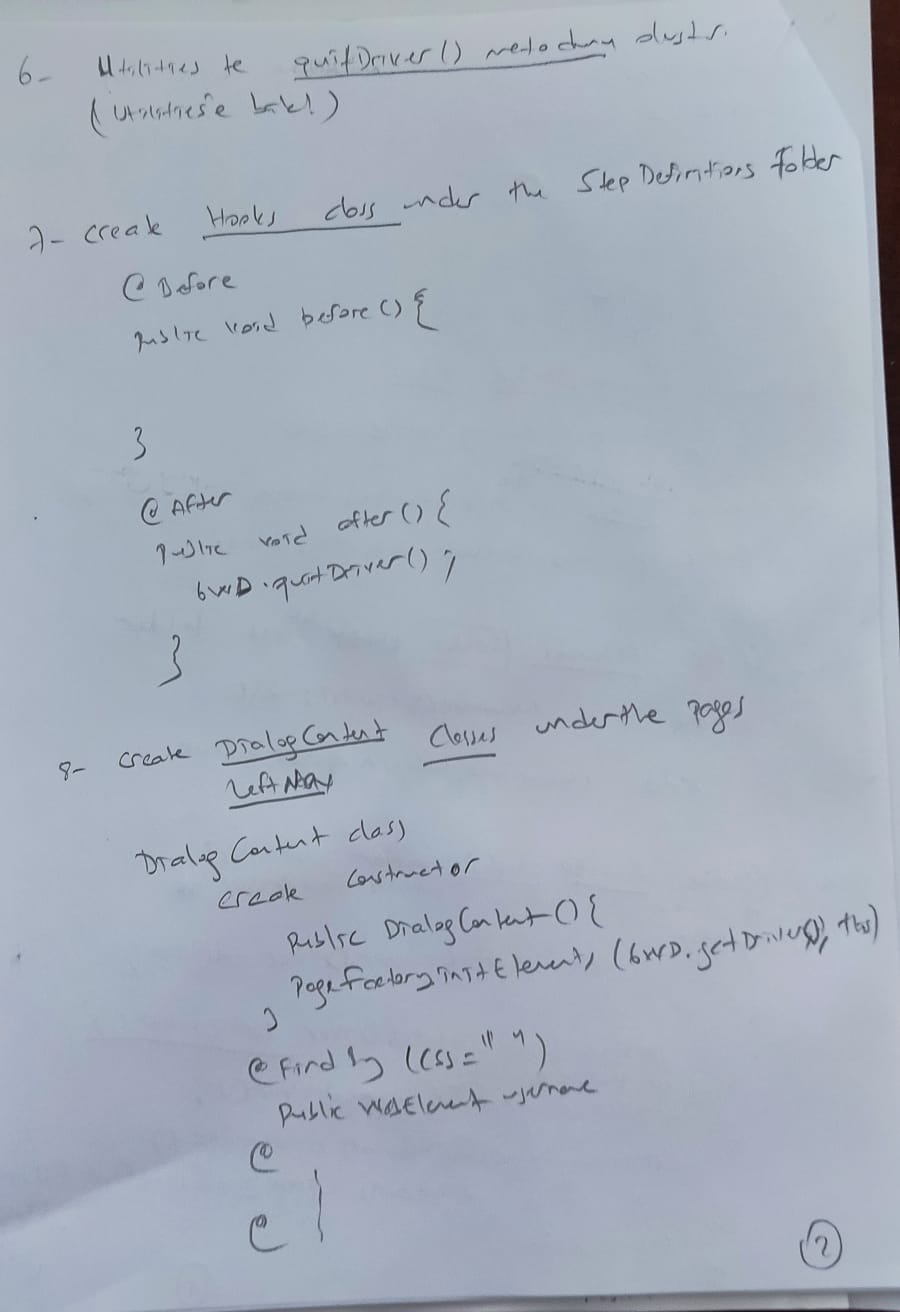 6- Utilities te quitDriver() metodunu oluştr.
(Utilities'e bak!)
7- create Hooks class under the Step Definitions Folder
@Before
public void before () {
}
@After
public void after () {
GWD.quitDriver();
}
8- create DialogContent Classes under the pages
Left Nav
Dialog Content class
create constructor
Public DialogContent () {
PageFactory initElements (GWD.getDriver(), this)
}
@Find by (css=" ")
Public WebElement username
@
@
2